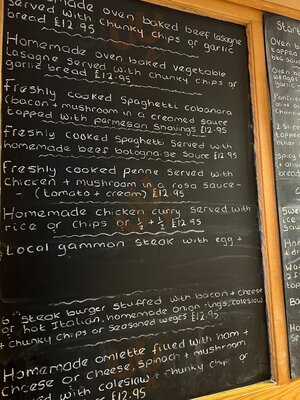 Homemade oven baked beef lasagne
served with chunky chips or garlic
bread £12.95
Homemade oven baked vegetable
lasagne served with chunky chips or
garlic bread £12.95
Freshly cooked Spaghetti Cobanara
(bacon + mushroom in a creamed sauce
topped with parmesan shavings £12.95
Freshly cooked Spaghetti Served with
homemade beef bolognaise Sauce £12.95
Freshly cooked penne Served with
Chicken + mushroom in a rosa sauce -
- (tomato + cream) £12.95
Homemade chicken curry served with
rice or chips or ½ + ½ £12.95
Local gammon steak with egg +
6oz steak burger stuffed with bacon + cheese
or hot Italian, homemade onion rings, coleslaw
+ chunky chips or seasoned weges £12.95
Homemade omlette filled with ham +
cheese or cheese, spinach + mushroom
served with coleslaw + chunky chips or
Start
Oven
topped
BBQ sauce
Oven